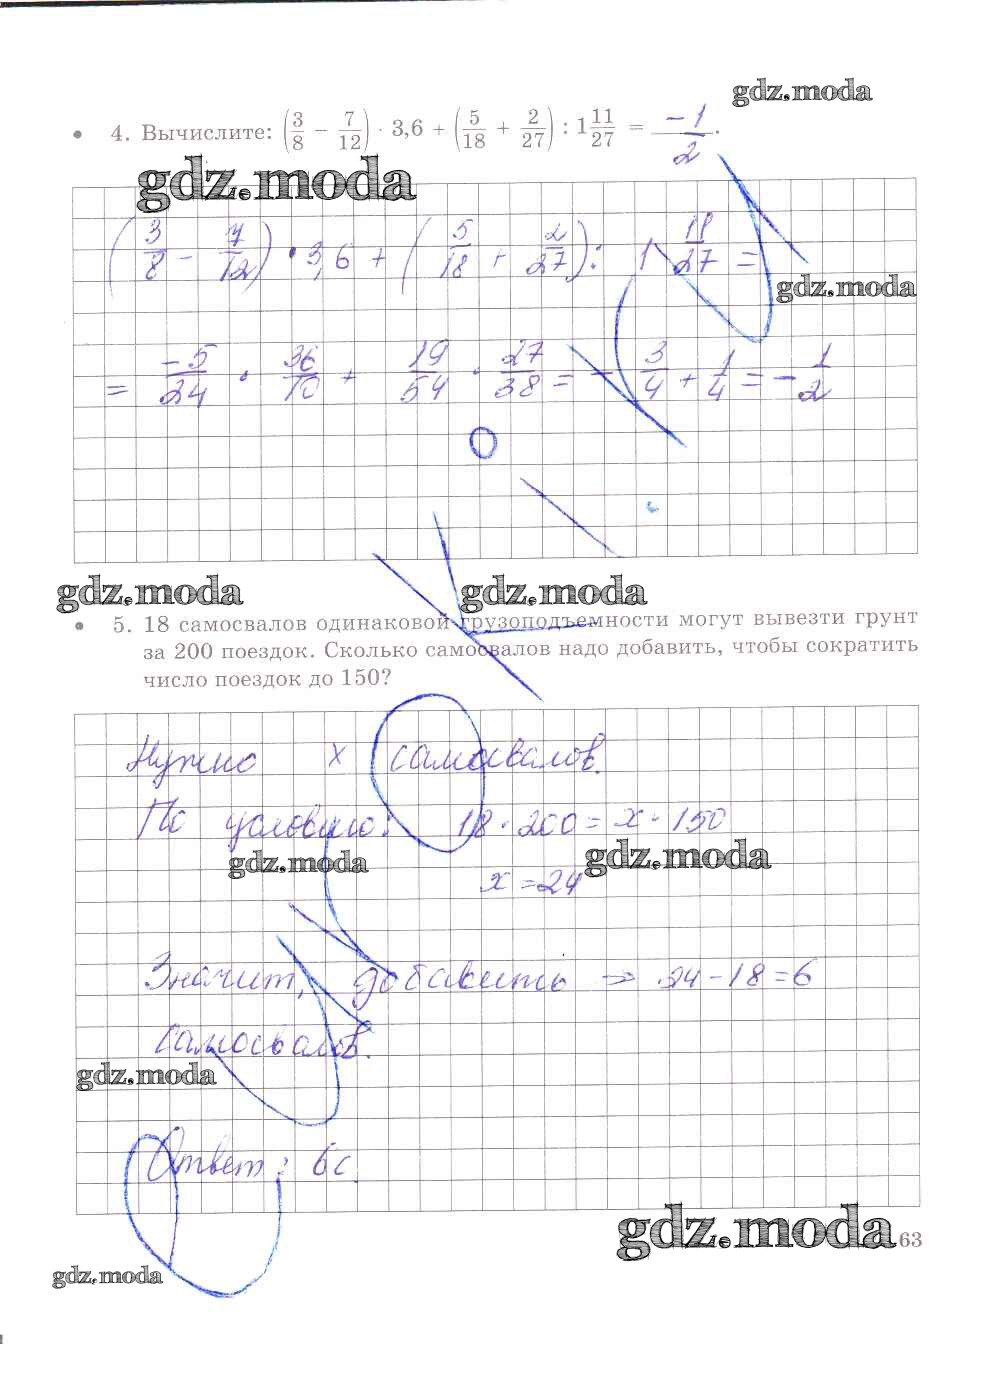 gdz.moda
4. Вычислите: (3/8 − 7/12) · 3,6 + (5/18 + 2/27) : 1 11/27 = −1/2.
gdz.moda
(3/8 − 7/12) · 3,6 + (5/18 + 2/27) : 1 11/27 =
gdz.moda
= −5/24 · 36/10 + 19/54 · 27/38 = − 3/4 + 1/4 = − 1/2
gdz.moda gdz.moda
5. 18 самосвалов одинаковой грузоподъемности могут вывезти грунт
за 200 поездок. Сколько самосвалов надо добавить, чтобы сократить
число поездок до 150?
Нужно x самосвалов.
По условию: 18 · 200 = x · 150
gdz.moda gdz.moda
x = 24
Значит, добавить ⇒ 24 − 18 = 6
самосвалов.
gdz.moda
Ответ: 6 с
gdz.moda 63
gdz.moda